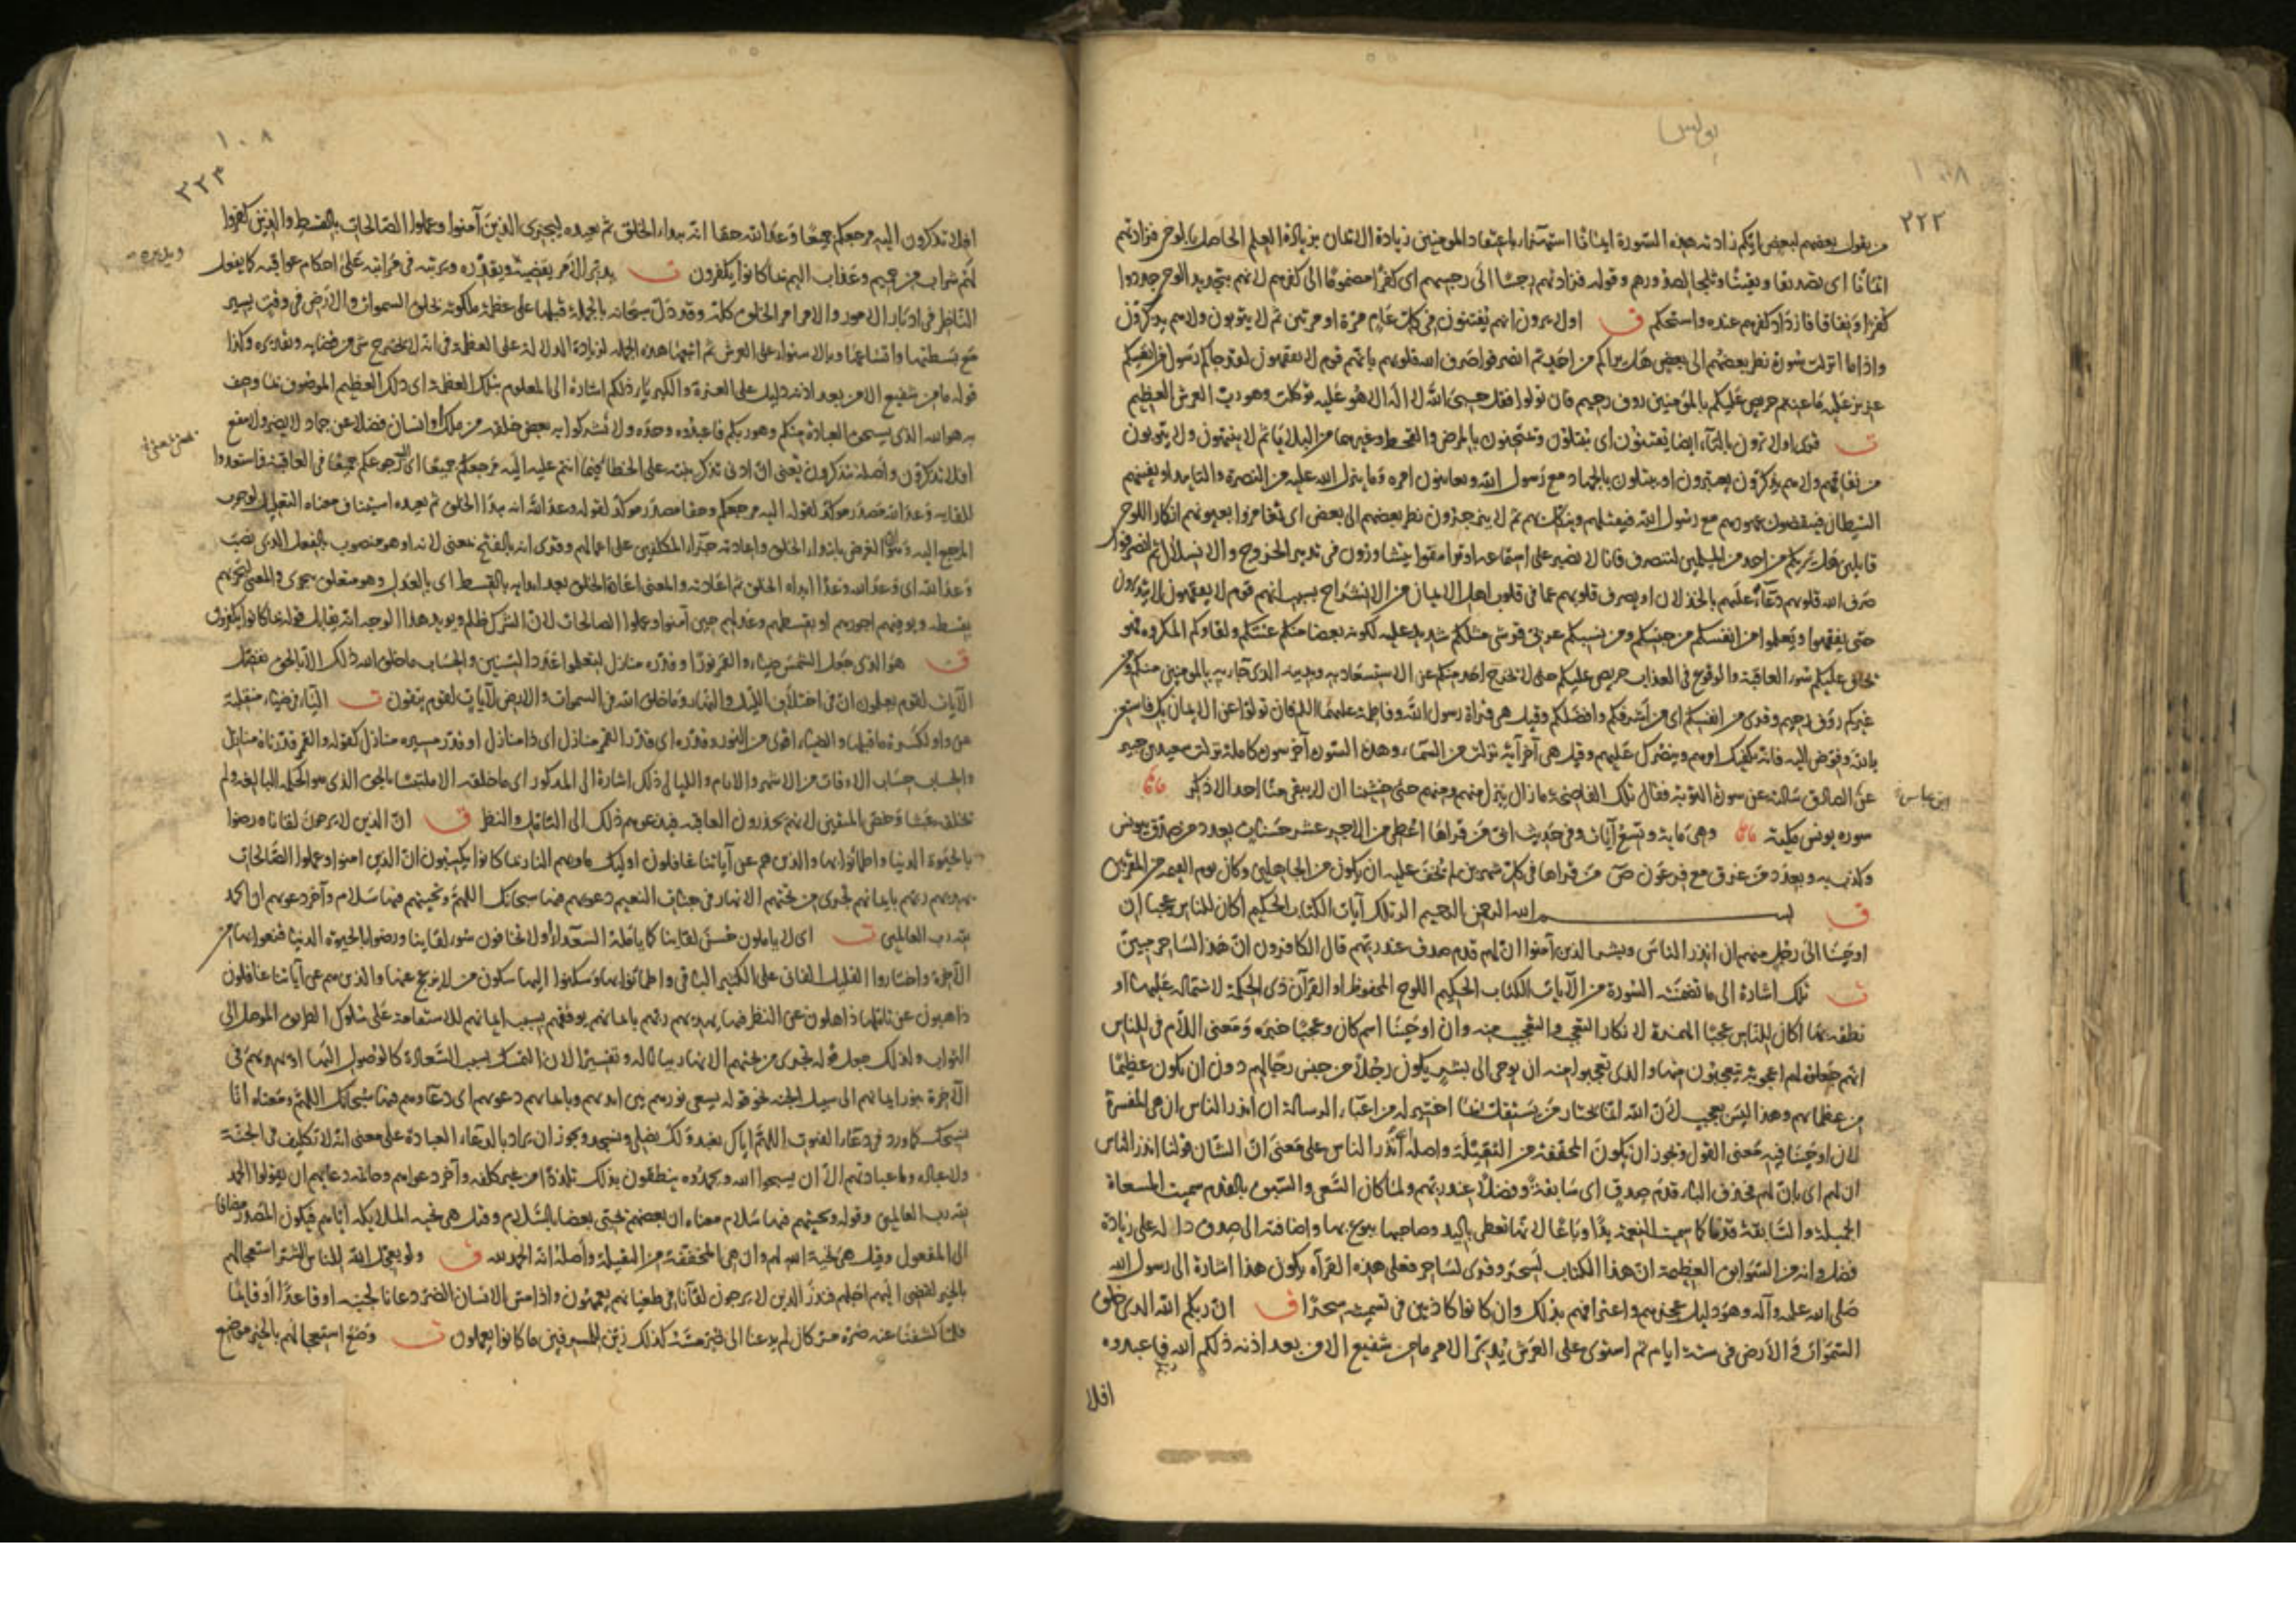 يونس
١٠٨
٢٢٢
من يقول بعضهم لبعض ايكم زادته هذه السورة ايمانا استهزاء باعتقاد المؤمنين زيادة الايمان بزيادة العلم الحاصل بالوحي فزادتهم
ايمانا اي تصديقا ويقينا وثلجا لصدورهم وقوله فزادتهم رجسا الى رجسهم اي كفرا مضموما الى كفرهم لانهم بتجديد الوحي جددوا
كفرا ونفاقا فازداد كفرهم عنده واستحكم ق اولا يرون انهم يفتنون في كل عام مرة او مرتين ثم لا يتوبون ولا هم يذكرون
واذا ما انزلت سورة نظر بعضهم الى بعض هل يراكم من احد ثم انصرفوا صرف الله قلوبهم بانهم قوم لا يفقهون لقد جاكم رسول من انفسكم
عزيز عليه ما عنتم حريص عليكم بالمؤمنين روف رحيم فان تولوا فقل حسبي الله لا اله الا هو عليه توكلت وهو رب العرش العظيم
ت قرى اولا ترون بالتاء ايضا يفتنون اي يبتلون ويمتحنون بالمرض والقحط وغيرهما من البلايا ثم لا ينتهون ولا يتوبون
من نفاقهم ولا هم يذكرون يعتبرون او يبتلون بالجهاد مع رسول الله ويعاينون امره وما ينزل الله عليه من النصرة والتاييد او يفتنهم
الشيطان فينقضون عهودهم مع رسول الله فيقتلهم وينكل بهم ثم لا ينزجرون نظر بعضهم الى بعض اي تغامزوا بعيونهم انكارا للوحي
قايلين هل يريكم من احد من المسلمين لننصرف فانا لا نصبر على استماعه او ترامقوا يتشاورون في تدبير الخروج والانسلال ثم انصرفوا
صرف الله قلوبهم دعاء عليهم بالخذلان او بصرف قلوبهم عما في قلوب اهل الايمان من الانشراح بسبب انهم قوم لا يفقهون لا يتدبرون
حتى يفقهوا ويعلموا من انفسكم من جنسكم ومن نسبكم عربي قرشي مثلكم شديد عليه لكونه بعضا منكم عنتكم ولقاوكم المكروه فهو
يخاف عليكم سوء العاقبة والوقوع في العذاب حريص عليكم حتى لا يخرج احد منكم عن الاستسعاد به وبدينه الذي جاء به بالمومنين منكم ومن
غيركم روف رحيم وقرى من انفسكم اي من اشرفكم وافضلكم وقيل هي قراة رسول الله وفاطمة عليهما السلم فان تولوا عن الايمان بك فاستعن
بالله وفوض اليه فانه يكفيك امرهم وينصرك عليهم وقيل هي آخر آية نزلت من السماء وهذه السورة آخر سورة كاملة نزلت سعيد بن جبير
عن الصادق سالته عن سورة التوبة فقال تلك الفاضحة ما زال ينزل منهم ومنهم حتى خشينا ان لا يبقى منا احد الا ذكر
ابن عباس
سوره يونس مكية وهي ماية وتسع آيات وفي حديث ابي من قراها اعطي من الاجر عشر حسنات بعدد من صدق بيونس
وكذب به وبعدد من غرق مع فرعون ص من قراها في كل شهرين لم يخف عليه ان يكون من الجاهلين وكان يوم القيمة من المقربين
ق بسم الله الرحمن الرحيم الر تلك آيات الكتاب الحكيم اكان للناس عجبا ان
اوحينا الى رجل منهم ان انذر الناس وبشر الذين آمنوا ان لهم قدم صدق عند ربهم قال الكافرون ان هذا لساحر مبين
ت تلك اشارة الى ما تضمنته السورة من الآيات الكتاب الحكيم اللوح المحفوظ او القرآن ذي الحكمة لاشتماله عليها او
نطقه بها اكان للناس عجبا الهمزة لانكار التعجب والتعجيب منه وان اوحينا اسم كان وعجبا خبره ومعنى اللام في للناس
انهم جعلوه لهم اعجوبة يتعجبون منها والذي تعجبوا منه ان يوحى الى بشر يكون رجلا من جنس رجالهم دون ان يكون عظيما
من عظمايهم وهذا ليس بعجيب لان الله انما يختار من يستقل بما اختير له من اعباء الرسالة ان انذر الناس ان هي المفسرة
لان اوحينا فيه معنى القول ويجوز ان يكون المخففة من الثقيلة واصله انذر الناس على معنى ان الشان قولنا انذر الناس
ان لهم اي بان لهم فحذف الباء قدم صدق اي سابقة وفضلا عند ربهم ولما كان السعي والسبق بالقدم سميت المسعاة
الجميلة والسابقة قدما كما سميت النعمة يدا وباعا لانها تعطى باليد وصاحبها يبوع بها واضافته الى صدق دالة على زيادة
فضل وانه من السوابق العظيمة ان هذا الكتاب لسحر وقرى لساحر فعلى هذه القراه يكون هذا اشارة الى رسول الله
صلى الله عليه وآله وهو دليل عجزهم واعترافهم بذلك وان كانوا كاذبين في تسميته سحرا ق ان ربكم الله الذي خلق
السموات والارض في ستة ايام ثم استوى على العرش يدبر الامر ما من شفيع الا من بعد اذنه ذلكم الله ربكم فاعبدوه
افلا
١٠٨
افلا تذكرون اليه مرجعكم جميعا وعد الله حقا انه يبدا الخلق ثم يعيده ليجزي الذين آمنوا وعملوا الصالحات بالقسط والذين كفروا
لهم شراب من حميم وعذاب اليم بما كانوا يكفرون ت يدبر الامر يقضيه ويقدره ويرتبه في مراتبه على احكام عواقبه كما يفعل
الناظر في ادبار الامور والامر امر الخلق كله وقد دل سبحانه بالجملة قبلها على عظمة ملكوته بخلق السموات والارض في وقت يسير
مع بسطتها واتساعها وبالاستواء على العرش ثم اتبعها هذه الجملة لزيادة الدلالة على العظمة في انه لا يخرج شي من قضايه وتقديره وكذا
قوله ما من شفيع الا من بعد اذنه دليل على العزة والكبرياء ذلكم اشارة الى المعلوم بتلك العظمة اي ذلك العظيم الموصوف بما وصف
به هو الله الذي يستحق العبادة منكم وهو ربكم فاعبدوه وحده ولا تشركوا به بعض خلقه من ملك او انسان فضلا عن جماد لا يضر ولا ينفع
افلا تذكرون واصله تتذكرون يعني ان ادنى تذكر ينبه على الخطا فيما انتم عليه اليه مرجعكم جميعا اي اليه رجوعكم جميعا في العاقبة فاستعدوا
للقايه وعد الله مصدر موكد لقوله اليه مرجعكم وحقا مصدر موكد لقوله وعد الله انه يبدا الخلق ثم يعيده استيناف معناه التعليل لوجوب
المرجع اليه وهو ان الغرض بابتداء الخلق واعادته جزاء المكلفين على اعمالهم وقرى انه بالفتح بمعنى لانه او هو منصوب بالفعل الذي نصب
وعد الله اي وعد الله وعدا ابداء الخلق ثم اعادته والمعنى اعادة الخلق بعد ابدايه بالقسط اي بالعدل وهو متعلق بيجزي والمعنى ليجزيهم
بقسطه ويوفيهم اجورهم او بقسطهم وعدلهم حين آمنوا وعملوا الصالحات لان الشرك ظلم ويويد هذا الوجه انه يقابل قوله بما كانوا يكفرون
ق هو الذي جعل الشمس ضياء والقمر نورا وقدره منازل لتعلموا عدد السنين والحساب ما خلق الله ذلك الا بالحق نفصل
الآيات لقوم يعلمون ان في اختلاف الليل والنهار وما خلق الله في السموات والارض لآيات لقوم يتقون ت الياء في ضياء منقلبة
عن واو لكسرة ما قبلها والضياء اقوى من النور وقدره اي وقدر القمر منازل اي ذا منازل او قدر مسيره منازل كقوله والقمر قدرناه منازل
والحساب حساب الاوقات من الاشهر والايام والليالي ذلك اشارة الى المذكور اي ما خلقه الا ملتبسا بالحق الذي هو الحكمة البالغة ولم
يخلقه عبثا وخص المتقين لانهم يحذرون العاقبه فيدعوهم ذلك الى التامل والنظر ق ان الذين لا يرجون لقاناه ورضوا
بالحيوة الدنيا واطمانوا بها والذين هم عن آياتنا غافلون اوليك ماويهم النار بما كانوا يكسبون ان الذين امنوا وعملوا الصالحات
يهديهم ربهم بايمانهم تجري من تحتهم الانهار في جنات النعيم دعويهم فيها سبحانك اللهم وتحيتهم فيها سلام وآخر دعويهم ان الحمد
لله رب العالمين ت اي لا ياملون حسن لقاينا كما يامله السعداء او لا يخافون سوء لقاينا ورضوا بالحيوة الدنيا قنعوا بها من
الآخرة واختاروا القليل الفاني على الكثير الباقي واطمانوا بها وسكنوا اليها سكون من لا يزعج عنها والذين هم عن آياتنا غافلون
ذاهبون عن تاملها ذاهلون عن النظر فيها يهديهم ربهم بايمانهم يوفقهم بسبب ايمانهم للاستقامة على سلوك الطريق الموصل الى
الثواب ولذلك جعل قوله تجري من تحتهم الانهار بيانا له وتفسيرا لان التمسك بسبب السعادة كالوصول اليها او يهديهم في
الآخرة بنور ايمانهم الى سبيل الجنة نحو قوله يسعى نورهم بين ايديهم وبايمانهم دعويهم اي دعاوهم فيها سبحانك اللهم ومعناه انا
نسبحك كما ورد في دعاء القنوت اللهم اياك نعبد ولك نصلي ونسجد ويجوز ان يراد بالدعاء العبادة على معنى انه لا تكليف في الجنة
ولا عبادة وما عبادتهم الا ان يسبحوا الله ويحمدوه ينطقون بذلك تلذذا من غير كلفه وآخر دعواهم وخاتمة دعايهم ان يقولوا الحمد
لله رب العالمين وقوله وتحيتهم فيها سلام معناه ان بعضهم يحيي بعضا بالسلام وقيل هي تحية الملايكة اياهم فيكون المصدر مضافا
الى المفعول وقيل هي تحية الله لهم وان هي المخففة من الثقيلة واصله انه الحمد لله ق ولو يعجل الله للناس الشر استعجالهم
بالخير لقضي اليهم اجلهم فنذر الذين لا يرجون لقآنا في طغيانهم يعمهون واذا مس الانسان الضر دعانا لجنبه او قاعدا او قايما
فلما كشفنا عنه ضره مر كان لم يدعنا الى ضر مسه كذلك زين للمسرفين ما كانوا يعملون ت وضع استعجالهم بالخير موضع